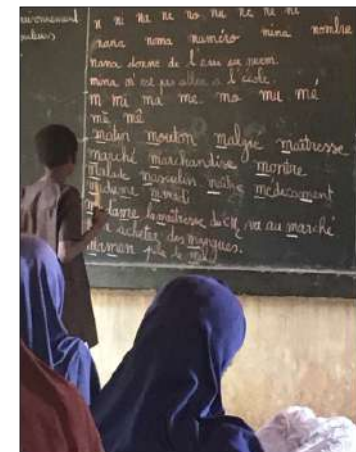 n ni na ne no nu né nè nê
nana noma numéro nina nombre
nana donne de l'eau au
mina n'est pas allée à l'école.
m mi ma me mo mu mé
mè mê
matin mouton malgré maîtresse
marché marchandise montre
malade masculin maître médicament
madame mardi
madame la maîtresse du va au marché
acheter des mangues.
maman pile le mil